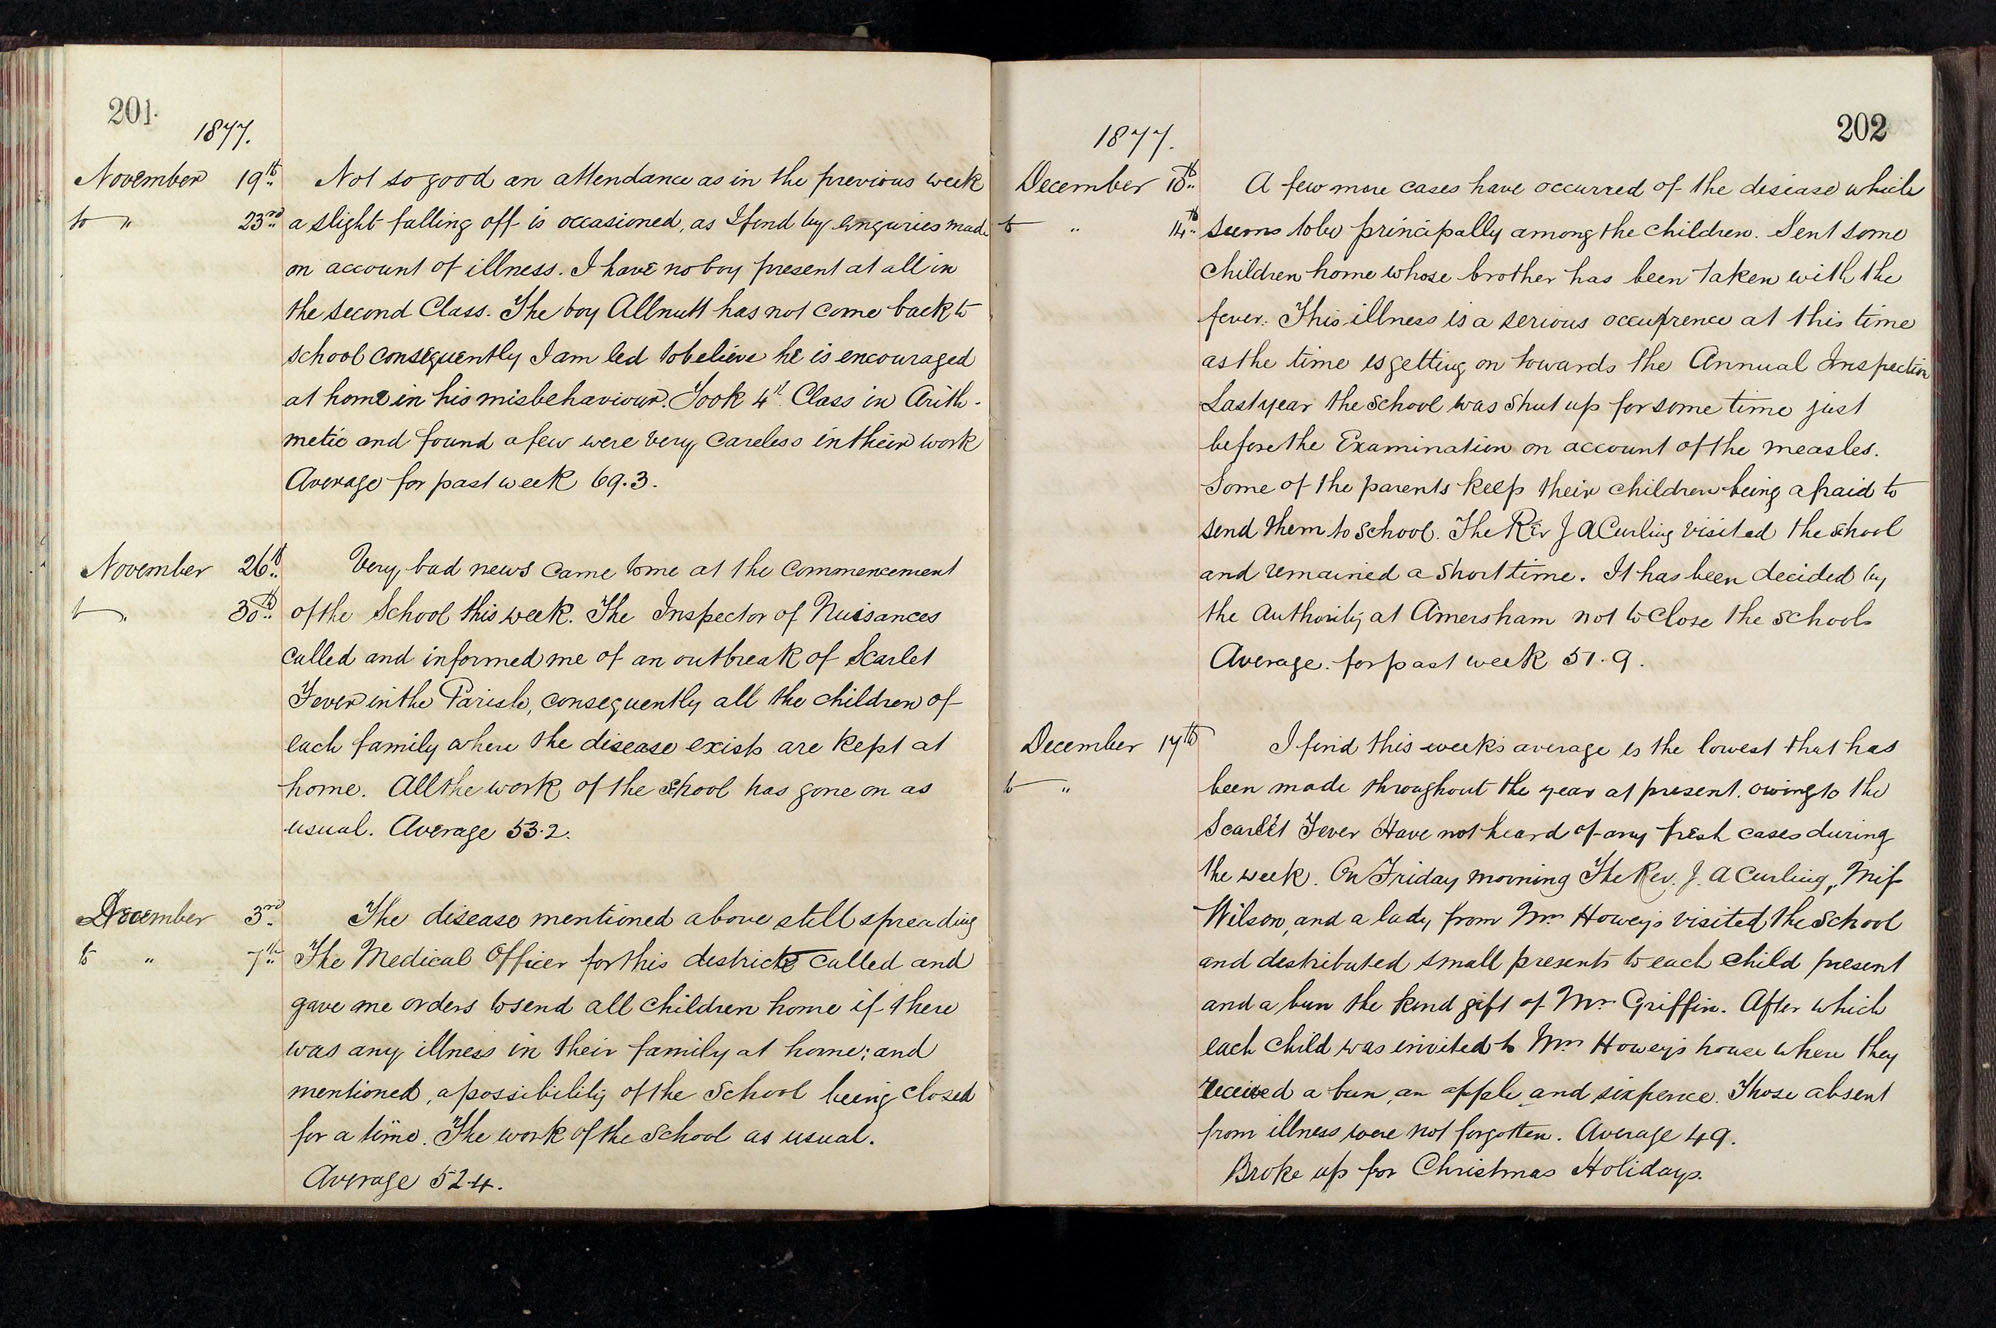 201.
1877.
November 19th Not so good an attendance as in the previous week
to " 23rd a slight falling off is occasioned, as I find by enquiries made
on account of illness. I have no boy present at all in
the second Class. The boy Allnutt has not come back to
school consequently I am led to believe he is encouraged
at home in his misbehaviour. Took 4th Class in Arith-
metic and found a few were very careless in their work
Average for past week 69.3.
November 26th Very bad news came to me at the commencement
to " 30th of the School this week. The Inspector of Nuisances
called and informed me of an outbreak of Scarlet
Fever in the Parish, consequently all the children of
each family where the disease exists are kept at
home. All the work of the school has gone on as
usual. Average 53.2.
December 3rd The disease mentioned above still spreading
to " 7th The Medical Officer for this district called and
gave me orders to send all children home if there
was any illness in their family at home; and
mentioned, a possibility of the School being closed
for a time. The work of the School as usual.
Average 52.4.
202
1877.
December 10th A few more cases have occurred of the disease which
to " 14th seems to be principally among the children. Sent some
children home whose brother has been taken with the
fever. This illness is a serious occurrence at this time
as the time is getting on towards the Annual Inspection
Last year the School was shut up for some time just
before the Examination on account of the measles.
Some of the parents keep their children being afraid to
send them to School. The Rev J A Curling visited the school
and remained a short time. It has been decided by
the Authority at Amersham not to close the schools
Average for past week 51.9.
December 17th I find this week's average is the lowest that has
to " been made throughout the year at present. owing to the
Scarlet Fever Have not heard of any fresh cases during
the week. On Friday morning The Rev. J. A Curling, Miss
Wilson, and a lady from Mrs Howey's visited the School
and distributed small presents to each child present
and a bun the kind gift of Mr Griffin. After which
each child was invited to Mrs Howey's house where they
received a bun, an apple and sixpence. Those absent
from illness were not forgotten. Average 49.
Broke up for Christmas Holidays.